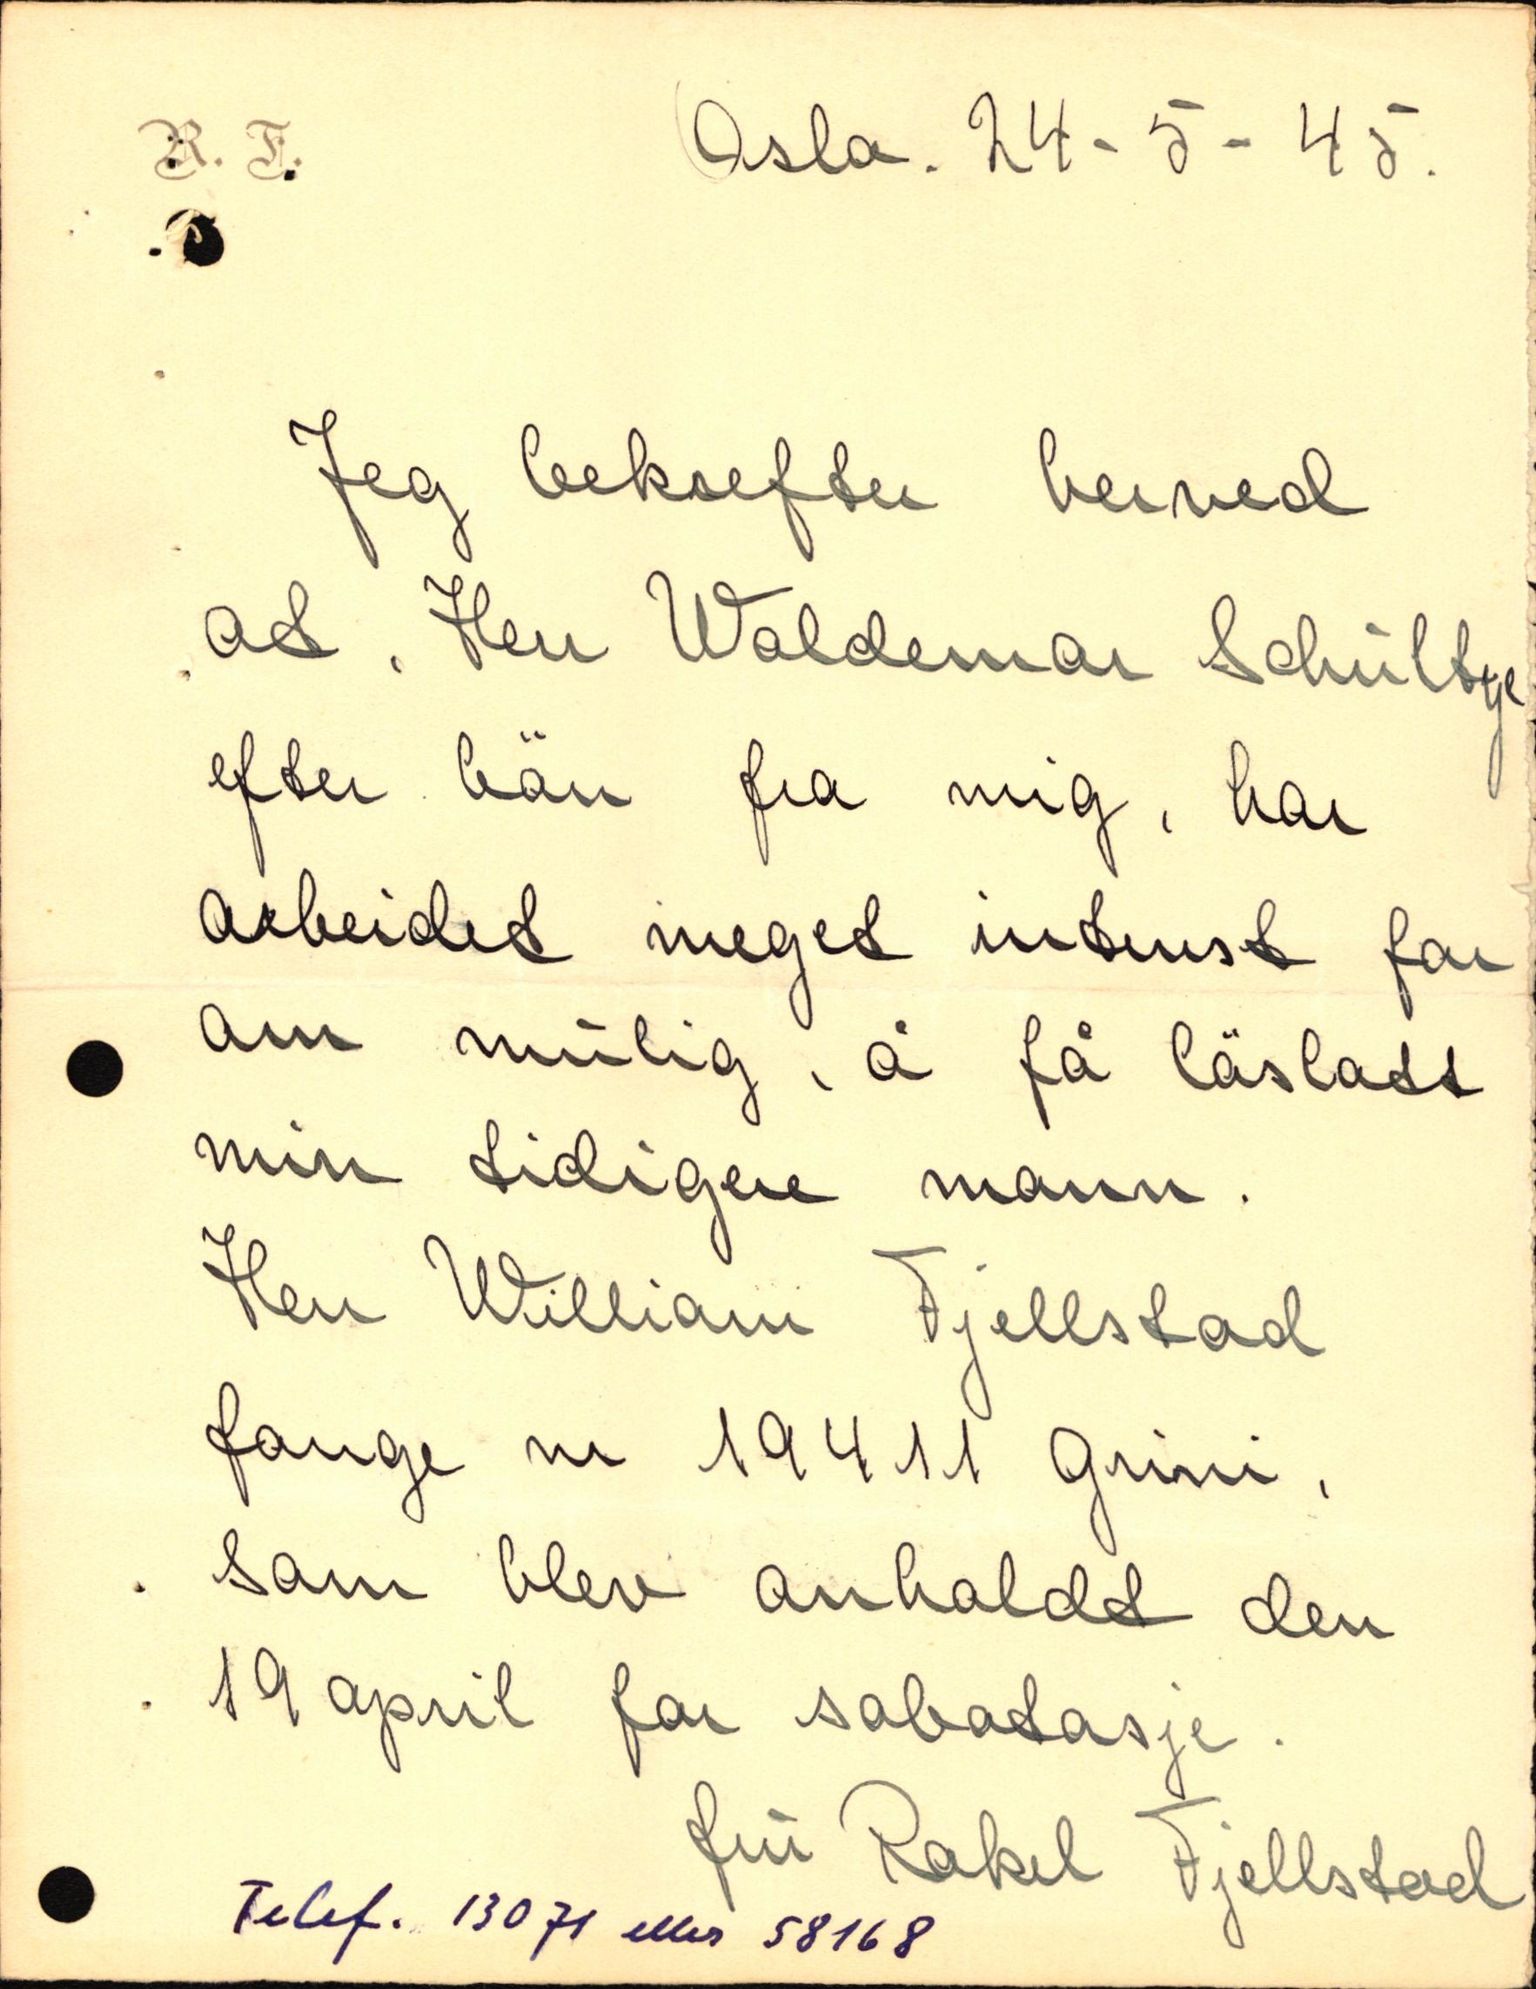 R. F.
Oslo. 24-5-45.
Jeg bekrefter herved
at, Herr Waldemar Schültze
efter bön fra mig, har
arbeidet meget intenst for
om mülig, å få löslatt
min tidigere mann.
Herr William Fjellstad
fange nr 19411 Grini,
som blev anholdt den
19 april for sabotasje.
frü Rakel Fjellstad
Telef. 13071 eller 58168